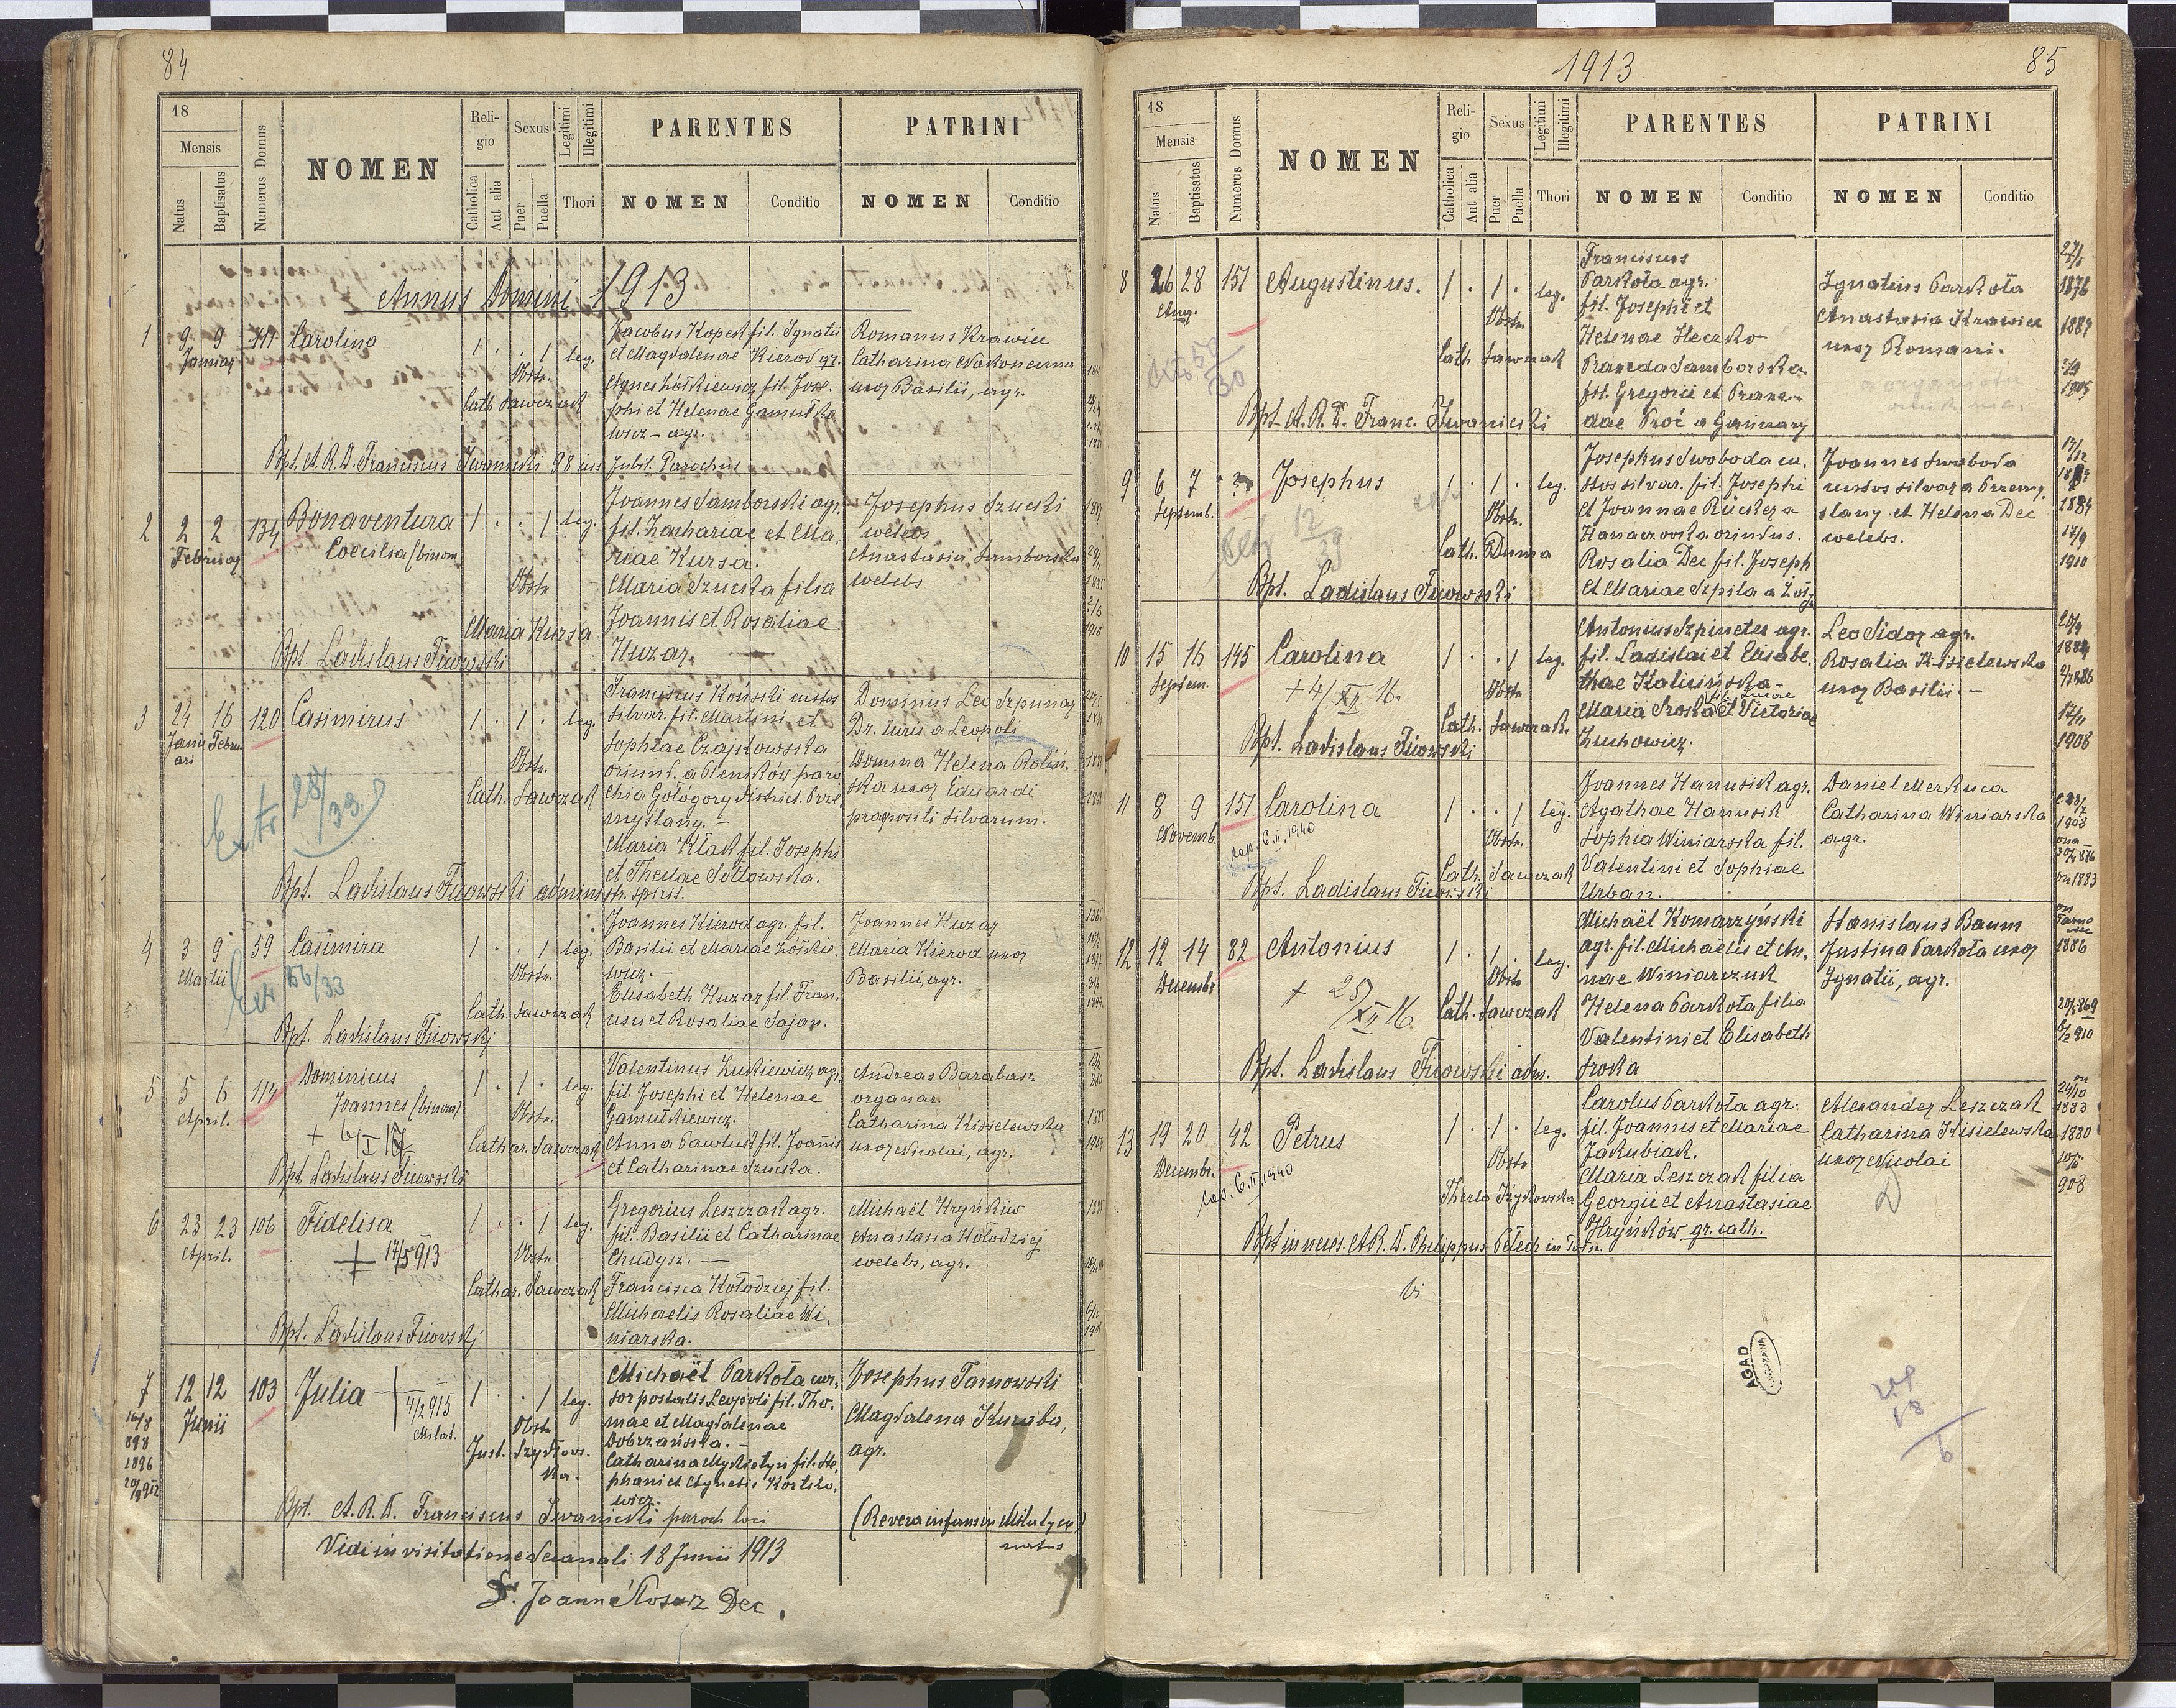 84
18
Mensis
Natus
Baptisatus
Numerus Domus
NOMEN
Reli-
gio
Catholica
Aut alia
Sexus
Puer
Puella
Legitimi
Illegitimi
Thori
PARENTES
NOMEN
Conditio
PATRINI
NOMEN
Conditio
Annus Domini 1913
1
9 9
Januar
Carolina
1 . . 1 leg.
Obstr.
Cath Sawczak
Jacobus Koper fil. Ignatii
et Magdalenae Kierod gr.
Agnes Łośkiewicz fil. Jose-
phi et Helenae Gamułka
wicz - agr.
Romanus Krawiec
Catharina Nakoneczna
uxor Basilii, agr.
Bpt. A. R. D. Franciscus Iwanicki Jubil. Parochus
2
2 2 134
Februar
Bonaventura
Coecilia (binom
1 . . 1 leg.
Obstr
Maria Kursa
Joannes Samborski agr.
fil. Zachariae et Ma-
riae Kursa.
Maria Szucka filia
Joannis et Rosaliae
Huzar.
Josephus Szucki
coelebs
Anastasia Samborska
coelebs
Bpt. Ladislaus Ficowski
3
24 16 120
Janu Febru
ari
Casimirus
1 . 1 . leg.
Obstr.
Cath. Sawczak
Extr 28/33
Franciscus Koński custos
silvar. fil. Martini et
Sophiae Czajkowska
oriund. a Pleników paro
chia Gołogóry district. Prze
myślany. -
Maria Kłak fil. Josephi
et Theclae Sołtowska.
Dominus Leo Szpunar
Dr. iuris a Leopoli
Domina Helena Roliń-
ska uxor Eduardi
praepositi silvarum.
Bpt. Ladislaus Ficowski administr. spirit.
4
3 9 59
Martii
Casimira
56/33
1 . . 1 leg.
Obstr.
Cath. Sawczak
Joannes Kierod agr. fil.
Basilii et Mariae Łośkie-
wicz. -
Elisabeth Huzar fil. Fran-
cisci et Rosaliae Sajan.
Joannes Huzar
Maria Kierod uxor
Basilii, agr.
Bpt. Ladislaus Ficowski
5
5 6 114
April.
Dominicus
Joannes (binom)
1 . 1 . leg.
Obstr.
Cathar. Sawczak
Valentinus Łukiewicz agr.
fil. Josephi et Helenae
Gamułkiewicz.
Anna Pawluk fil. Joannis
et Catharinae Szucka.
Andreas Barabasz
organar.
Catharina Kisielewska
uxor Nicolai, agr.
Bpt. Ladislaus Ficowski
6
23 23 106
April.
Fidelisa
+ 17/5 913
1 . . 1 leg.
Obstr.
Cathar. Sawczak
Gregorius Leszczak agr.
fil. Basilii et Catharinae
Chudysz. -
Francisca Kołodziej fil.
Michaelis Rosaliae Wi-
niarska.
Michaël Hryńkiw
Anastasia Kołodziej
coelebs, agr.
Bpt. Ladislaus Ficowski
7
12 12 103
Junii
Julia + 4/2 915
Milat.
1 . . 1 leg.
Obstr.
Just. Szydłows-
ka.
Michaël Parkoła cur-
sor postalis Leopoli fil. Tho-
mae et Magdalenae
Dobrzańska. -
Catharina Mykietyn fil. Ste-
phani et Agnetis Kostko-
wicz.
Josephus Tarnowski
Magdalena Kuraba,
agr.
Bpt. A. R. D. Franciscus Iwanicki paroch loci
(Revera infans in Milatyn
natus
Vidi in visitatione decanali 18 Junii 1913
X. Joann Kosarz Dec.
1913
85
18
Mensis
Natus
Baptisatus
Numerus Domus
NOMEN
Reli-
gio
Catholica
Aut alia
Sexus
Puer
Puella
Legitimi
Illegitimi
Thori
PARENTES
NOMEN
Conditio
PATRINI
NOMEN
Conditio
8
26 28 151
Aug.
Augustinus.
1 . 1 . leg.
Obstr.
Cath Sawczak
Franciscus
Parkoła agr.
fil. Josephi et
Helenae Heczko
Praxeda Samborska
fil. Gregorii et Praxe-
dae Proć a Ganiaczy
Ignatius Parkoła
Anastasia Krawiec
uxor Romani.
1876
Bpt. A. R. D. Franc. Iwanicki
9
6 7
Septemb.
Josephus
12/39
1 . 1 . leg.
Obstr.
Cath. Duma
Josephus Swoboda cu-
stos silvar. fil. Josephi
et Joannae Rücker a
Hanaczowka oriundus.
Rosalia Dec fil. Joseph
et Mariae Szpila a
Joannes Swoboda
custos silvar a Przemy-
slany et Helena Dec
coelebs.
1884
17/9
1910
Bpt. Ladislaus Ficowski
10
15 16 145
Septem.
Carolina
+ 4/XI 16.
1 . . 1 leg.
Obstr
Cath. Sawczak.
Antonius Szpineter agr.
fil. Ladislai et Elisabe-
thae Kaluinska -
Maria Sroka et Victoriae
Zuchowicz.
Leo Sidor agr.
Rosalia Kisielewska
uxor Basilii. -
17/11
1908
Bpt. Ladislaus Ficowski
11
8 9 151
Novemb.
Carolina
cop. 6.II.1940
1 . . 1 leg.
Obstr.
Cath. Sawczak
Joannes Hanusik agr.
Agathae Hanusik
Sophia Winiarska fil.
Valentini et Sophiae
Urban.
Daniel Merkuca
Catharina Winiarska
agr.
Bpt. Ladislaus Ficowski
12
12 14 82
Decembr
Antonius
+ 25/XII 16.
1 . 1 . leg.
Obstr
Cath. Sawczak
Michaël Komarzyński
agr. fil. Michaelis et An-
nae Winiarczuk
Helena Parkoła filia
Valentini et Elisabeth
Sroka
Stanislaus Baum
Justina Parkoła uxor
Ignatii, agr.
1886
Bpt. Ladislaus Ficowski adm.
13
19 20 42
Decembr.
Petrus
cop. 6.II.1940
1 . 1 . leg.
Obstr
Thecla Szydłowska
Carolus Parkoła agr.
fil. Joannis et Mariae
Jakubiak.
Maria Leszczak filia
Georgii et Anastasiae
Hryńków gr. cath.
Alexander Leszczak
Catharina Kisielewska
uxor Nicolai
1883
1880
908
Bpt in neces. A R. D. Philippus Pełech in
AGAD
WARSZAWA